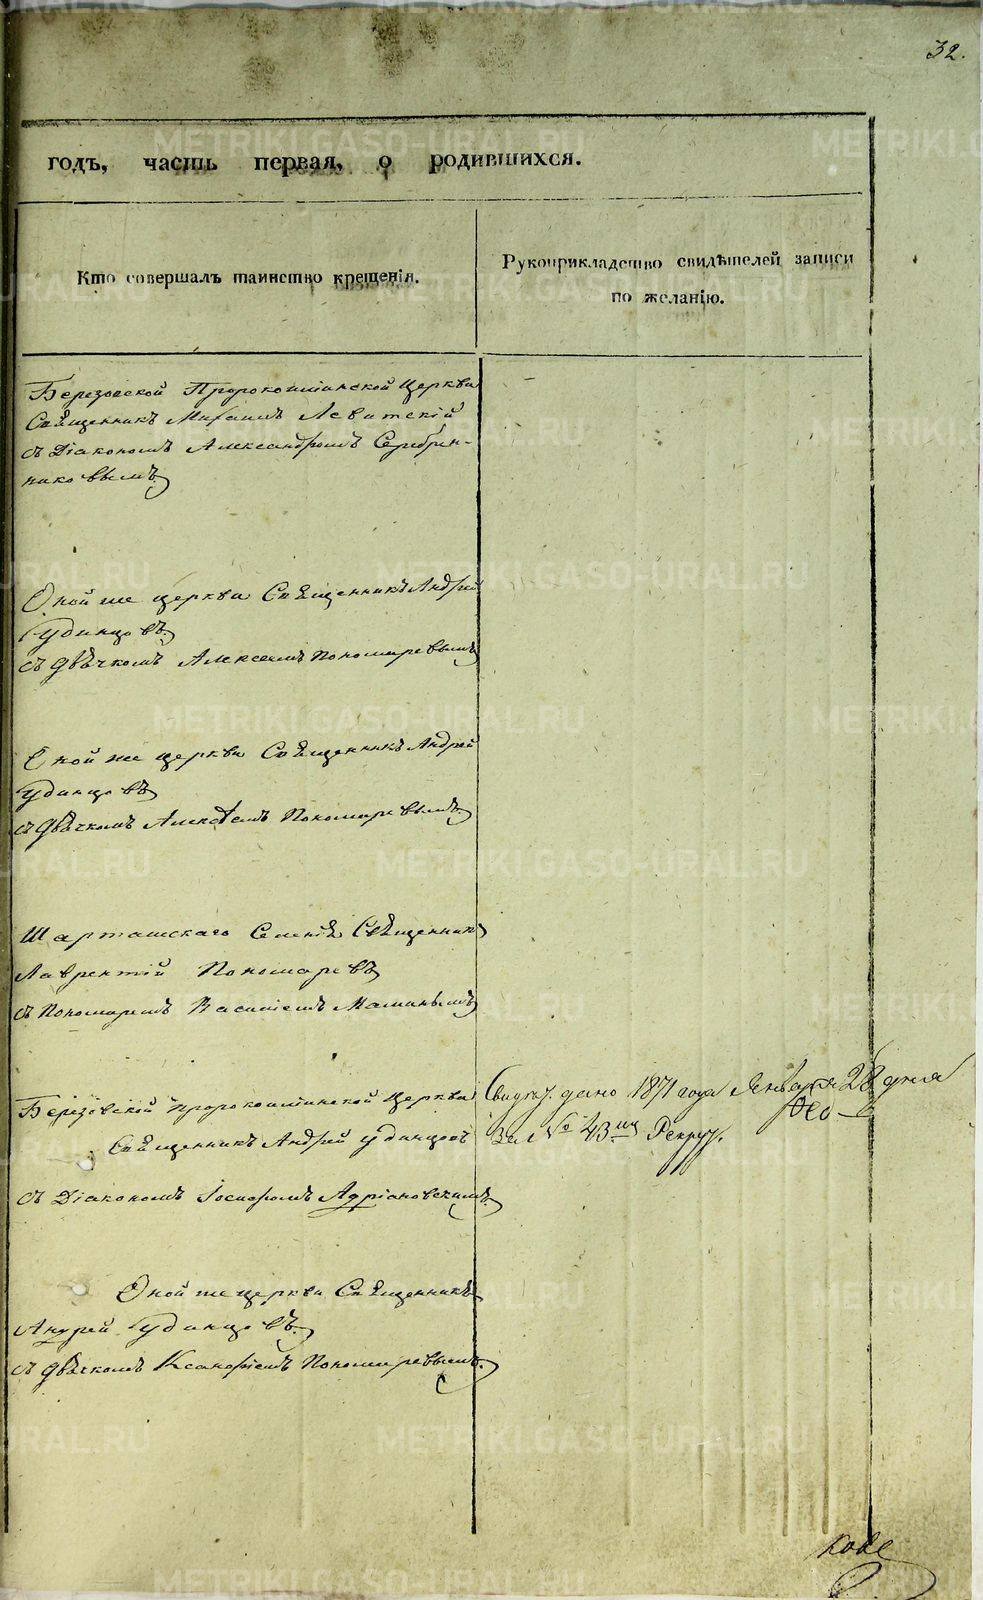 32.
годъ, часть первая, о родившихся.
Кто совершалъ таинство крещенія.
Рукоприкладство свидѣтелей записи
по желанію.
Березовской Пророкоилинской Церкви
Священникъ Михаилъ Левитскій
съ Діакономъ Александромъ Серебрен-
никовымъ
Оной же церкви Священникъ Андрей
Удинцовъ.
съ дьячкомъ Алексеемъ Пономаревымъ
Оной же церкви Священникъ Андрей
Удинцовъ
съ дьячкомъ Алексѣемъ Пономаревымъ.
Шарташскаго Селенія Священник
Лаврентій Пономаревъ
съ Пономаремъ Василіемъ Маминымъ
Березовской Пророкоилинской Церкви
Священникъ Андрей Удинцовъ
съ Діакономъ Іосифомъ Адріановскимъ.
Свидѣт. дано 1871 года Января 28 дня
За № 43 Рекрут.
Оной же церкви Священникъ
Андрей Удинцовъ.
съ дьячкомъ Ксанофіемъ Пономаревымъ.
METRIKI.GASO-URAL.RU